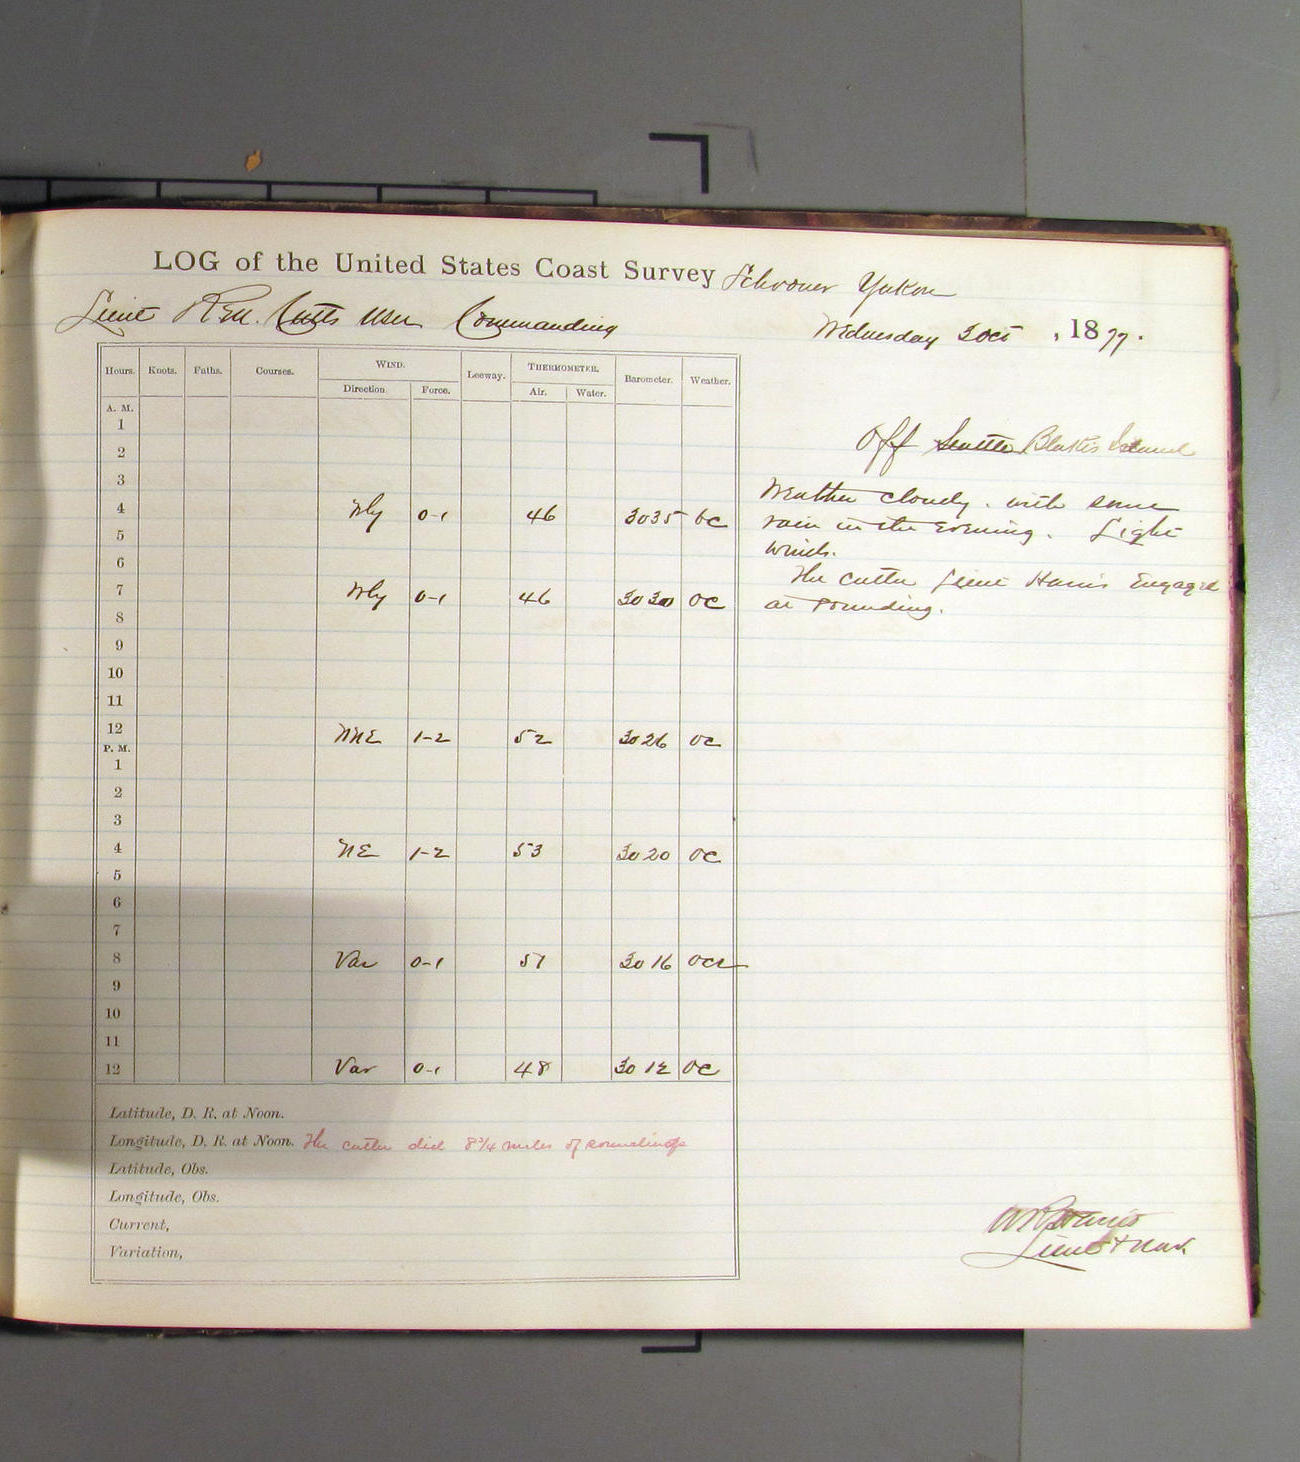 LOG of the United States Coast Survey Schooner Yukon
Lieut R M. Cutts USN Commanding
Wednesday 3 Oct , 1877.
Hours. Knots. Faths. Courses. WIND. Leeway. THERMOMETER. Barometer. Weather.
Direction. Force. Air. Water.
A. M.
1
2
3
4 Wly 0-1 46 3035 bc
5
6
7 Wly 0-1 46 3030 oc
8
9
10
11
12 NNE 1-2 52 3026 oc
P. M.
1
2
3
4 NE 1-2 53 3020 oc
5
6
7
8 Var 0-1 51 3016 ocr
9
10
11
12 Var 0-1 48 3012 oc
Latitude, D. R. at Noon.
Longitude, D. R. at Noon. The cutter did 8 3/4 miles of soundings
Latitude, Obs.
Longitude, Obs.
Current,
Variation,
Off Seattle Blakes Island
Weather cloudy. with some
rain in the evening. Light
winds.
The cutter Lieut Harris Engaged
at sounding.
Harris
Lieut &